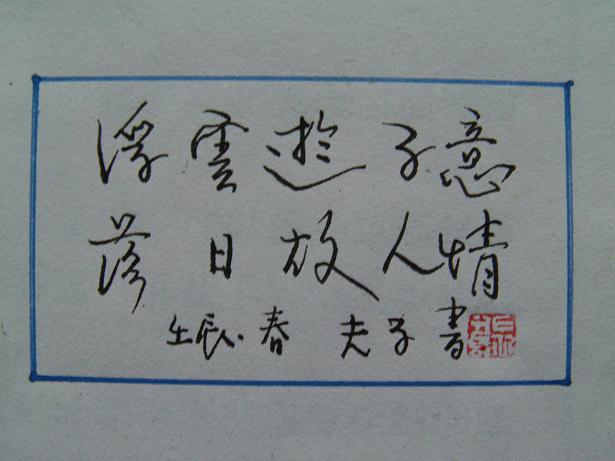 浮雲遊子意
落日故人情
壬辰春 書